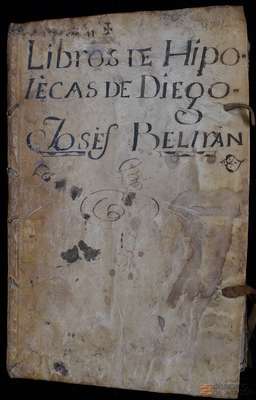 Libros DE Hipo-
TECAS DE Diego-
Josef BELtRAN